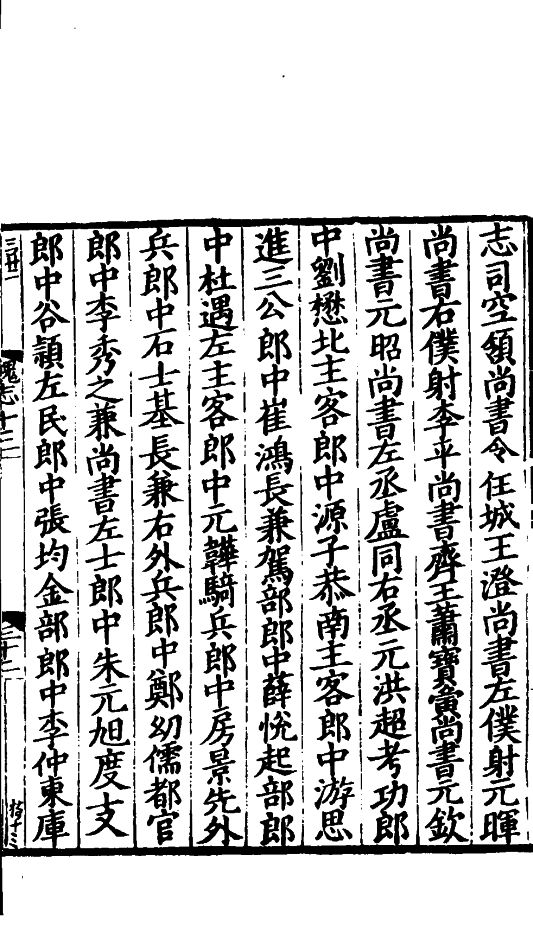 志司空領尚書令任城王澄尚書左僕射元暉
尚書右僕射李平尚書齊王蕭寶夤尚書元欽
尚書元昭尚書左丞盧同右丞元洪超考功郎
中劉懋北主客郎中源子恭南主客郎中游思
進三公郎中崔鴻長兼駕部郎中薛悅起部郎
中杜遇左主客郎中元韡騎兵郎中房景先外
兵郎中石士基長兼右外兵郎中鄭幼儒都官
郎中李秀之兼尚書左士郎中朱元旭度支
郎中谷穎左民郎中張均金部郎中李仲東庫
三廿二
魏志十二
二十二